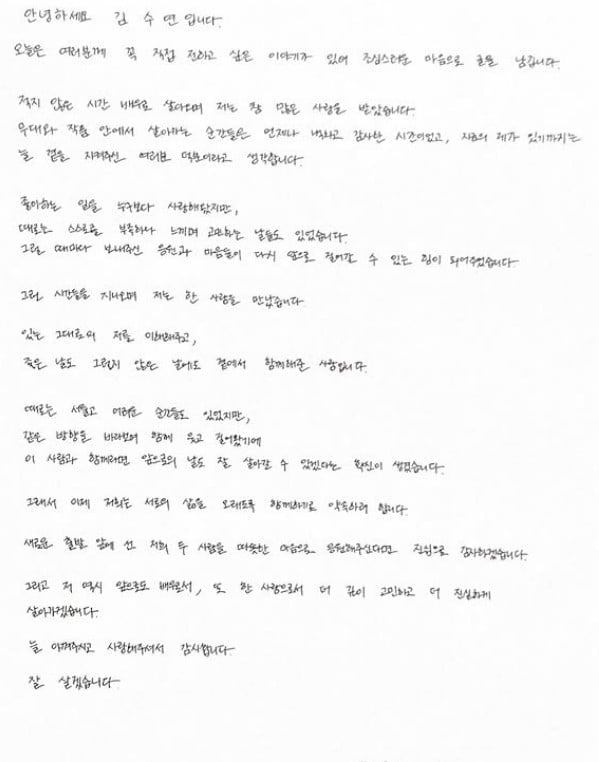 안녕하세요 김수연입니다.
오늘은 여러분께 꼭 직접 전하고 싶은 이야기가 있어 조심스러운 마음으로 글을 남깁니다.
적지 않은 시간 배우로 살아오며 저는 참 많은 사랑을 받았습니다.
무대와 작품 안에서 살아가는 순간들은 언제나 벅차고 감사한 시간이었고, 지금의 제가 있기까지는
늘 곁을 지켜주신 여러분 덕분이라고 생각합니다.
좋아하는 일을 누구보다 사랑해왔지만,
때로는 스스로를 부족하다 느끼며 고민하는 날들도 있었습니다.
그럴 때마다 보내주신 응원과 마음들이 다시 앞으로 걸어갈 수 있는 힘이 되어주었습니다.
그런 시간들을 지나오며 저는 한 사람을 만났습니다.
있는 그대로의 저를 이해해주고,
좋은 날도 그렇지 않은 날에도 곁에서 함께해준 사람입니다.
때로는 서툴고 어려운 순간들도 있었지만,
같은 방향을 바라보며 함께 웃고 걸어왔기에
이 사람과 함께라면 앞으로의 날도 잘 살아갈 수 있겠다는 확신이 생겼습니다.
그래서 이제 저희는 서로의 삶을 오래도록 함께하기로 약속하려 합니다.
새로운 출발 앞에 선 저희 두 사람을 따뜻한 마음으로 응원해주신다면 진심으로 감사하겠습니다.
그리고 저 역시 앞으로도 배우로서, 또 한 사람으로서 더 깊이 고민하고 더 진실하게
살아가겠습니다.
늘 아껴주시고 사랑해주셔서 감사합니다.
잘 살겠습니다.